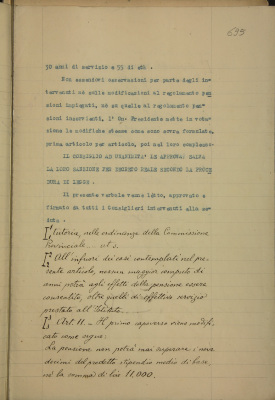 699
30 anni di servizio e 55 di età.
Non essendovi osservazioni per parte degli in-
tervenuti nè sulle modificazioni al regolamento pen
sioni impiegati, nè su quelle al regolamento pen-
sioni inservienti, l'On. Presidente mette in vota-
zione le modifiche stesse come sono avanti formulate,
prima articolo per articolo, poi nel loro complesso.
IL CONSIGLIO AD UNANIMITA' LE APPROVA SALVA
LA LORO SANZIONE PER DECRETO REALE SECONDO LA PROCE
DURA DI LEGGE.
Il presente verbale venne letto, approvato e
firmato da tutti i Consiglieri intervenuti alla se-
duta.
L'Autoria, alle ordinanze della Commissione
Provinciale
All'infuori dei casi contemplati nel pre-
sente articolo, nessun maggior computo di
anni potrà agli effetti della pensione essere
consentito, oltre quelli di effettivo servizio
prestato all'Istituto.
L'Art. 11. - Il primo capoverso viene modifi-
cato come segue:
La pensione non potrà mai superare i nove
decimi del predetto stipendio medio di base,
nè la somma di lire 11.000.